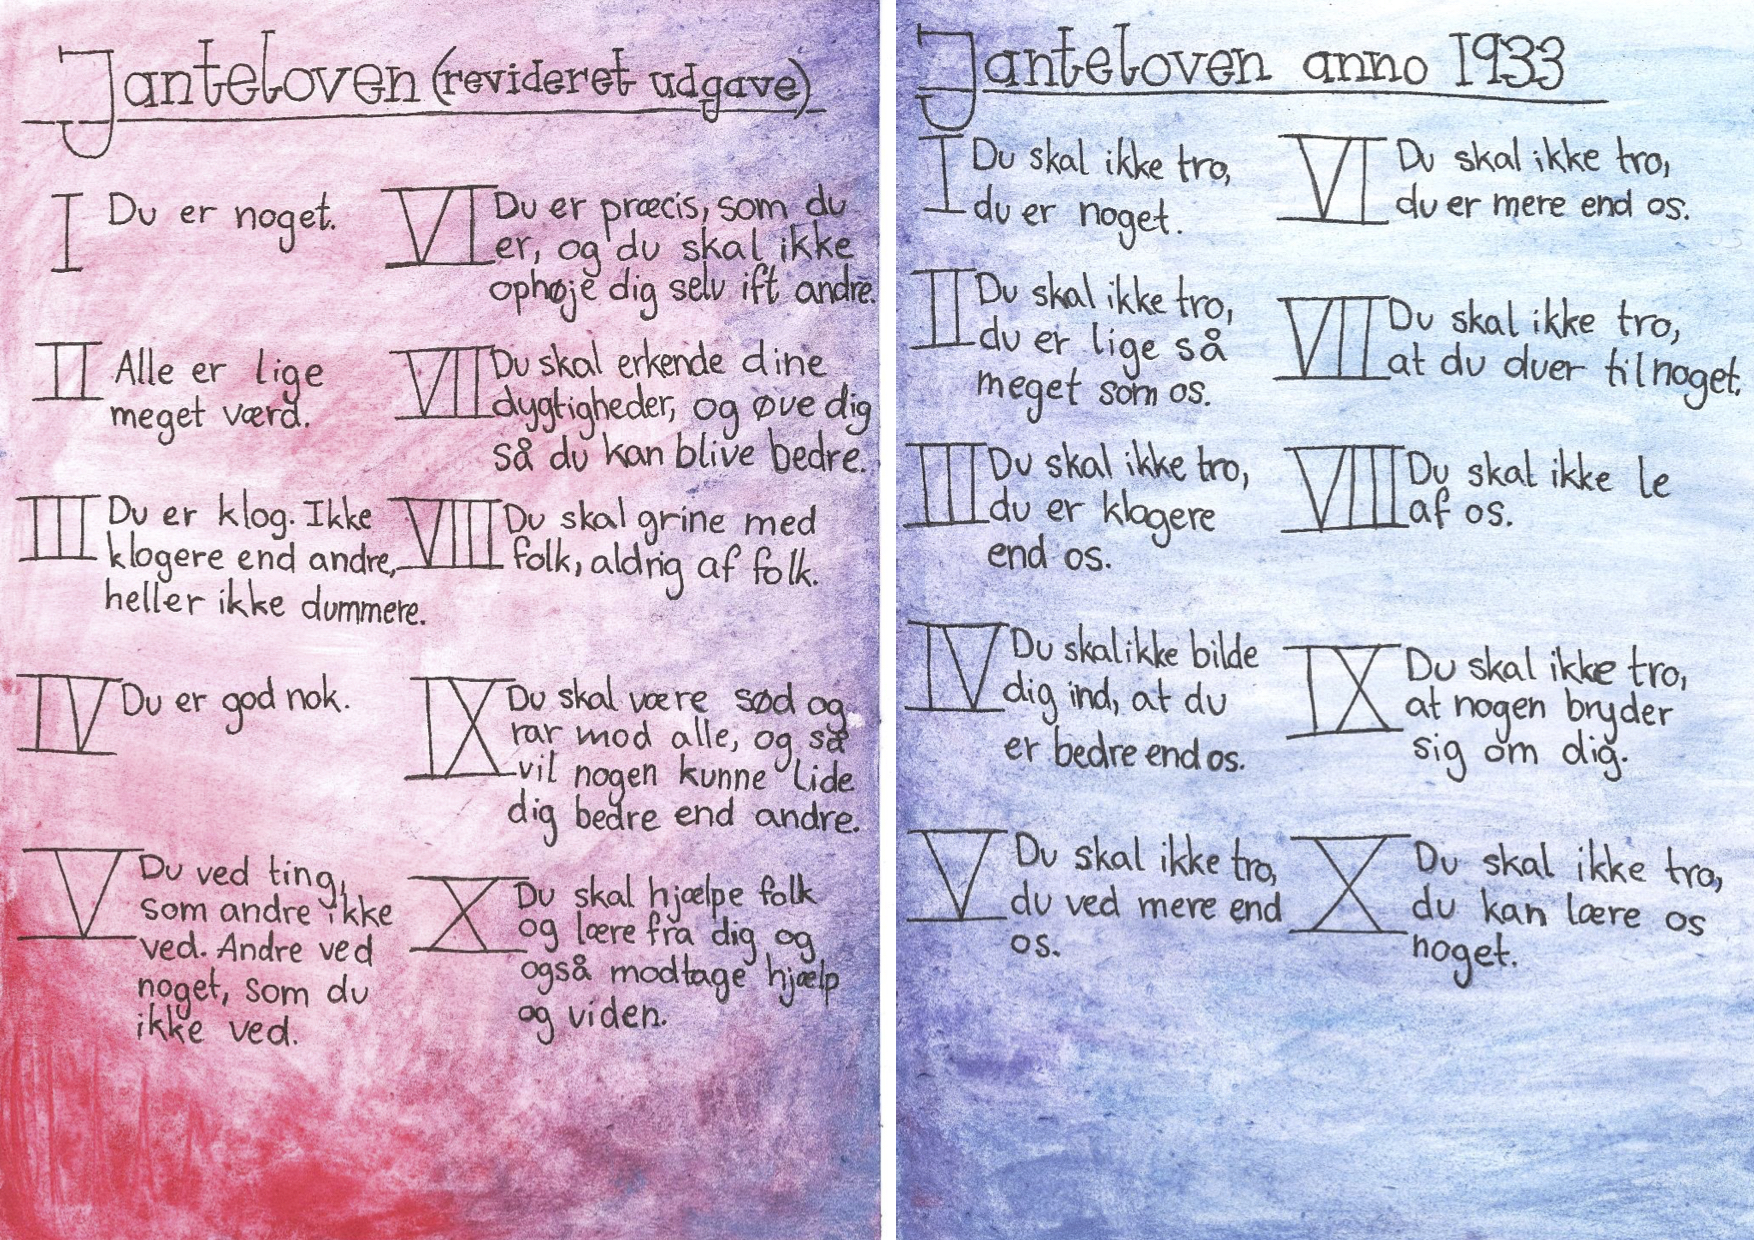 Janteloven (revideret udgave)
I
Du er noget.
II
Alle er lige
meget værd.
III
Du er klog. Ikke
klogere end andre,
heller ikke dummere.
IV
Du er god nok.
V
Du ved ting,
som andre ikke
ved. Andre ved
noget, som du
ikke ved.
VI
Du er præcis, som du
er, og du skal ikke
ophøje dig selv ift andre.
VII
Du skal erkende dine
dygtigheder, og øve dig
så du kan blive bedre.
VIII
Du skal grine med
folk, aldrig af folk.
IX
Du skal være sød og
rar mod alle, og så
vil nogen kunne lide
dig bedre end andre.
X
Du skal hjælpe folk
og lære fra dig og
også modtage hjælp
og viden.
Janteloven anno 1933
I
Du skal ikke tro,
du er noget.
II
Du skal ikke tro,
du er lige så
meget som os.
III
Du skal ikke tro,
du er klogere
end os.
IV
Du skal ikke bilde
dig ind, at du
er bedre end os.
V
Du skal ikke tro,
du ved mere end
os.
VI
Du skal ikke tro,
du er mere end os.
VII
Du skal ikke tro,
at du duer til noget.
VIII
Du skal ikke le
af os.
IX
Du skal ikke tro,
at nogen bryder
sig om dig.
X
Du skal ikke tro,
du kan lære os
noget.